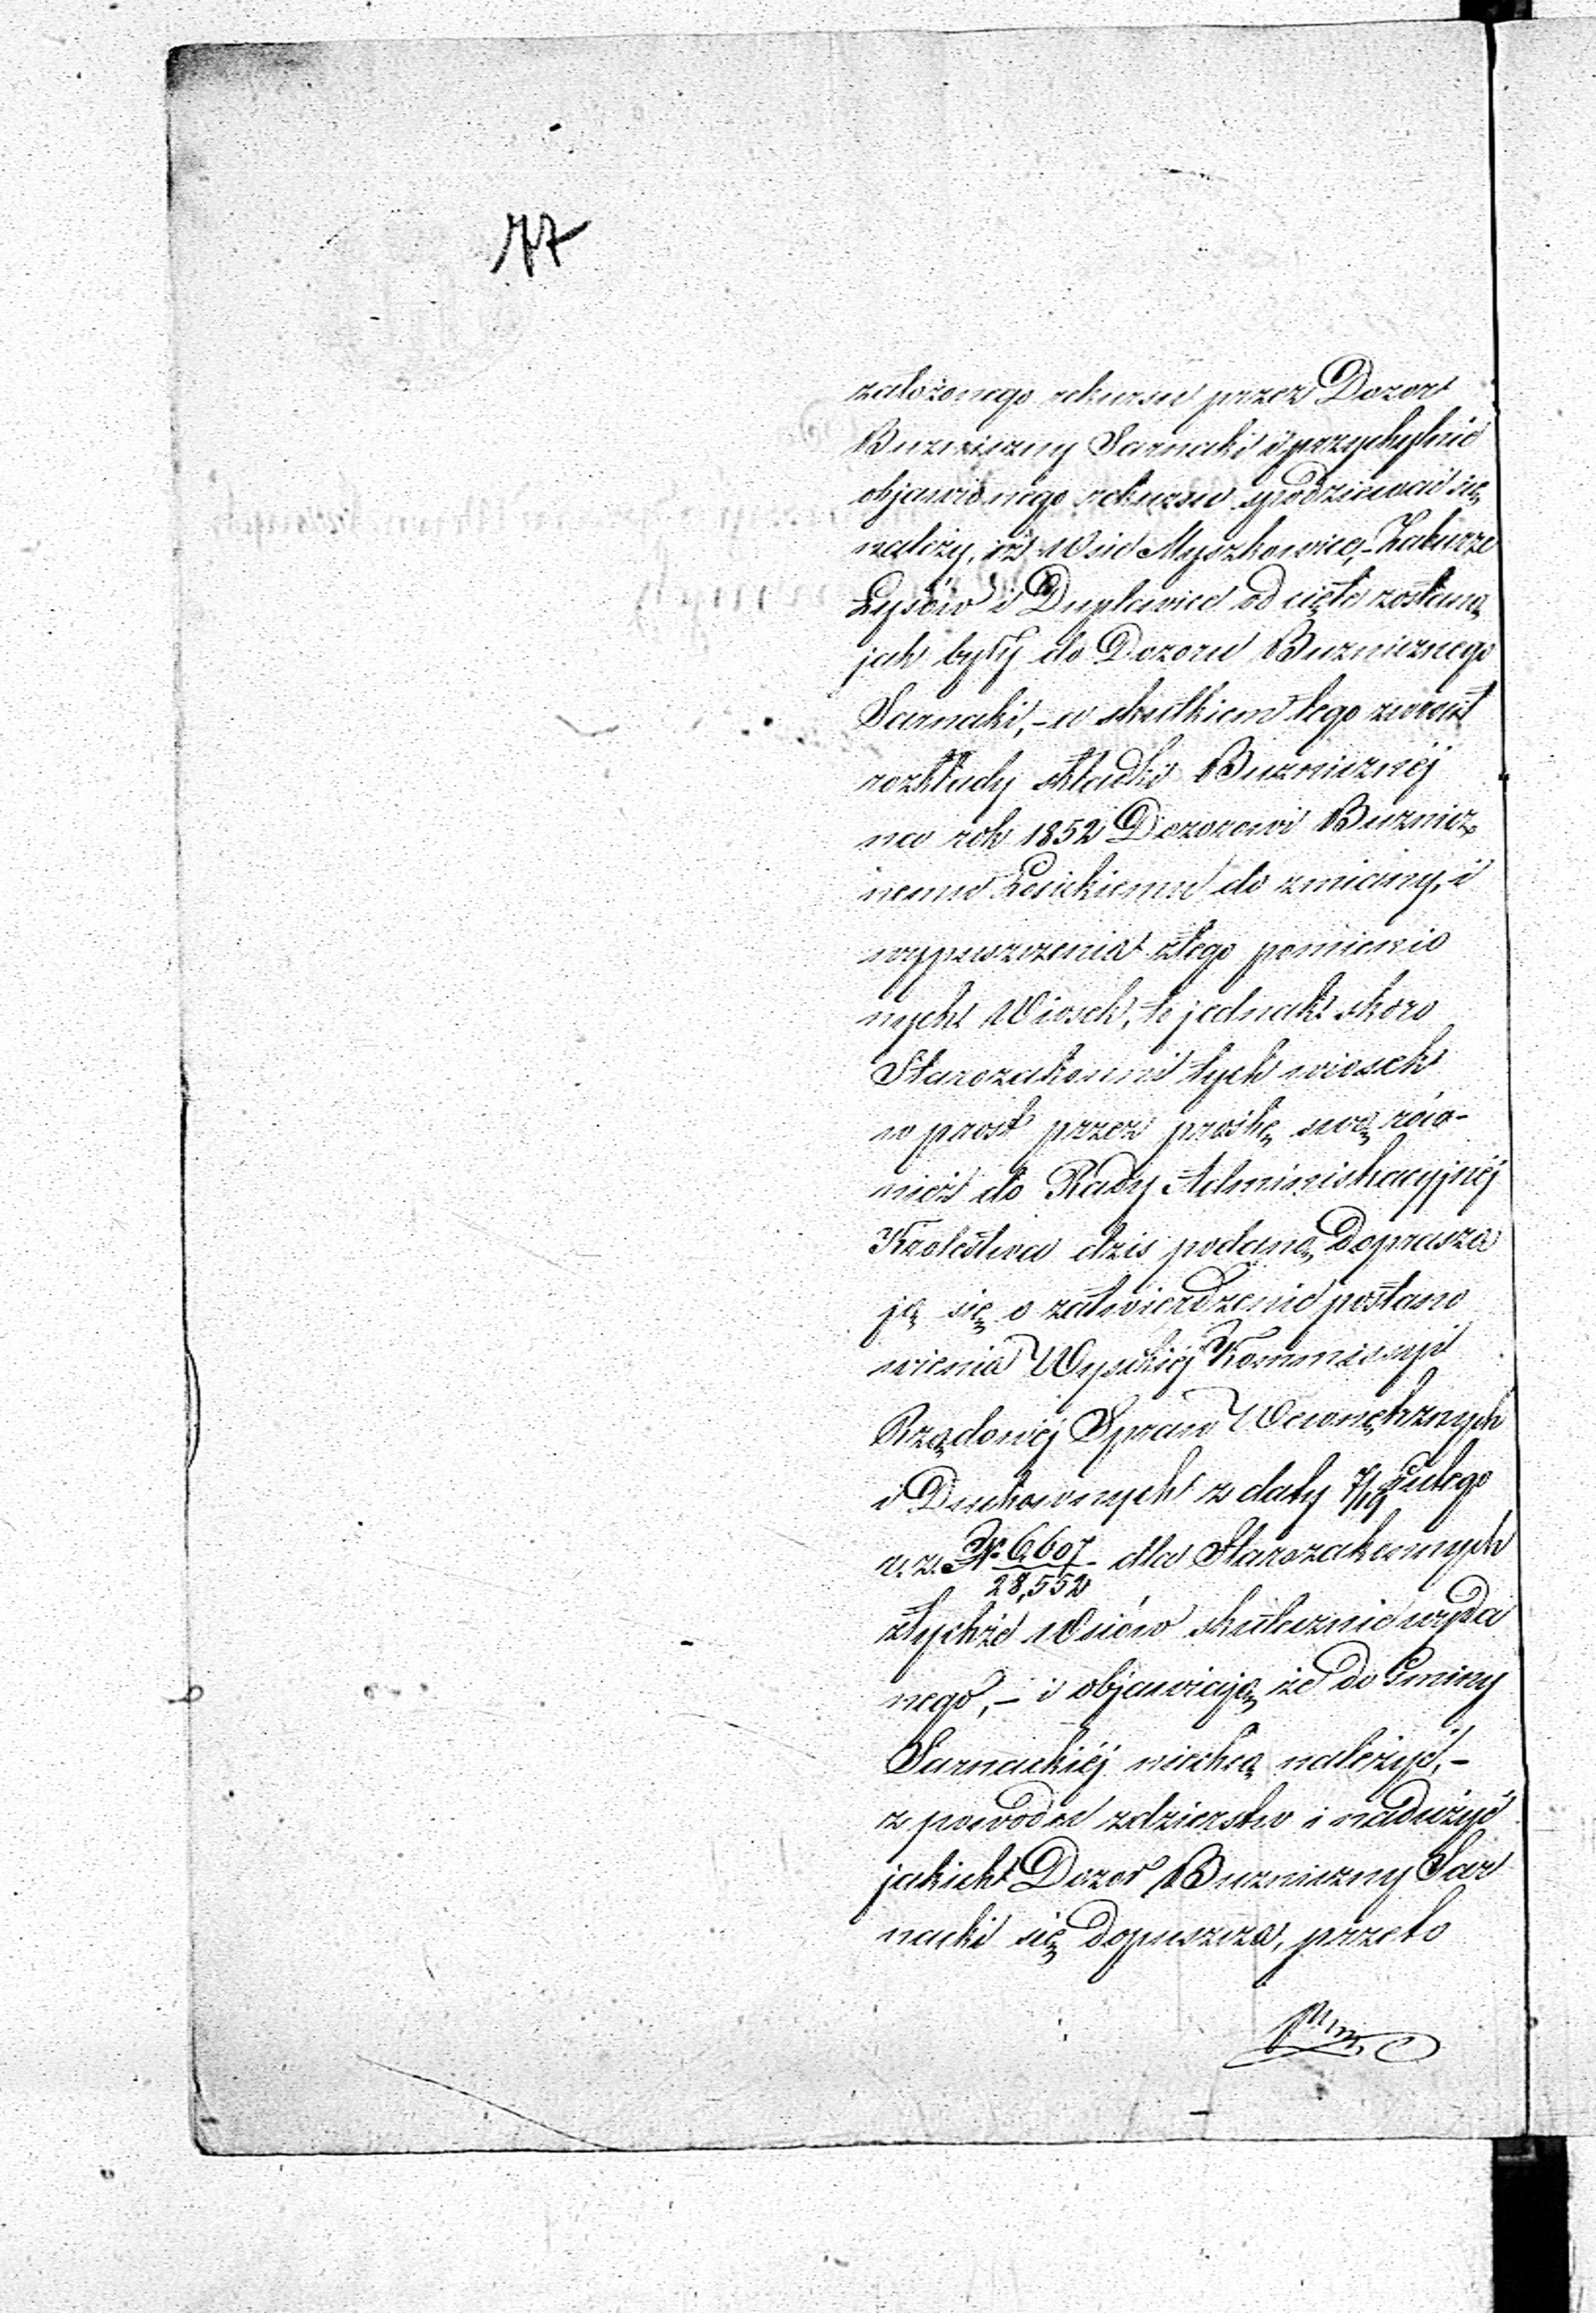 77
założonego rekursu przez Dozor
Buzniczny Sarnaki i przychylnie
objawionego rekursu spodziewać się
należy, iż Wsie Myszkowice, - Zaburze
Łysów i Duplewice od cięte zostaną
jak były do Dozoru Buznicznego
Sarnaki, - w skutkiem tego zwraca
rozkłady składki Buznicznéj
na rok 1852 Dozorowi Buznicz
nemu Łosickiemu do zmiany, i
wypuszczenia ztego pomienio
nych Wiosek, to jednak skoro
Starozakonni tych wiosek
w prost przez prośbę swą rów-
nież do Rady Administracyjnéj
Królestwa dziś podaną Doprasza
ją się o zatwierdzenie postano
wienia Wysokiéj Kommissyi
Rządowéj Spraw Wewnętrznych
i Duchownych z daty 7/19 Lutego
r. z. N. 6,607/28,552 dla Starozakonnych
ztychże Wsiów skutecznie wyda
nego, - i objawiają że do Gminy
Sarnackiéj niechcą należyć, -
z powodu zdzierstw i nadużyć
jakich Dozór Buzniczny Sar
nacki się dopuszcza, przeto